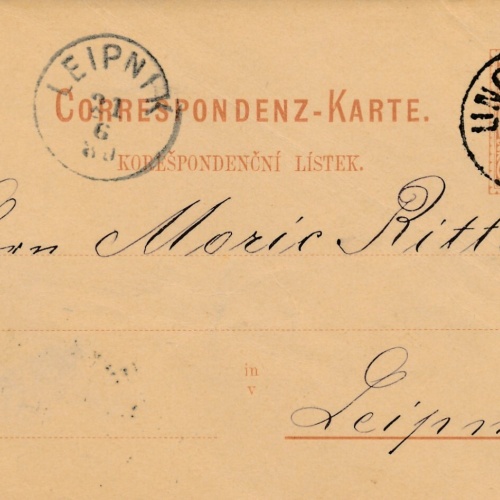 LEIPNIK
21
6
80
CORRESPONDENZ-KARTE.
KOREŠPONDENČNÍ LÍSTEK.
Moric Ritt
in
v
Leipn